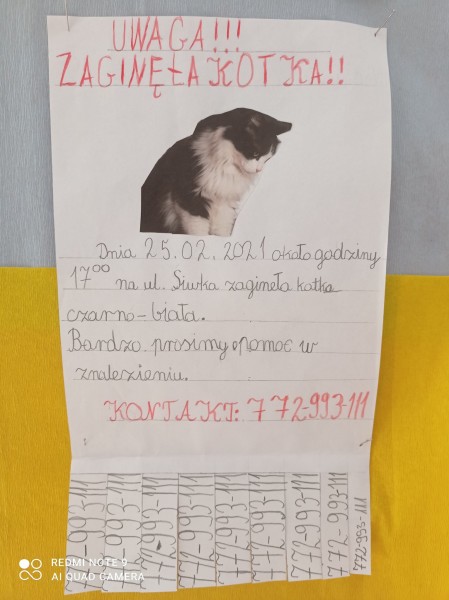 UWAGA!!!
ZAGINĘŁA KOTKA!!
Dnia 25.02.2021 około godziny
17⁰⁰ na ul. Siwka zaginęła kotka
czarno-biała.
Bardzo prosimy o pomoc w
znalezieniu.
KONTAKT: 772-993-111
772-993-111
772-993-111
772-993-111
772-993-111
772-993-111
772-993-111
772-993-111
772 993-111
772-993-111
REDMI NOTE 9
AI QUAD CAMERA